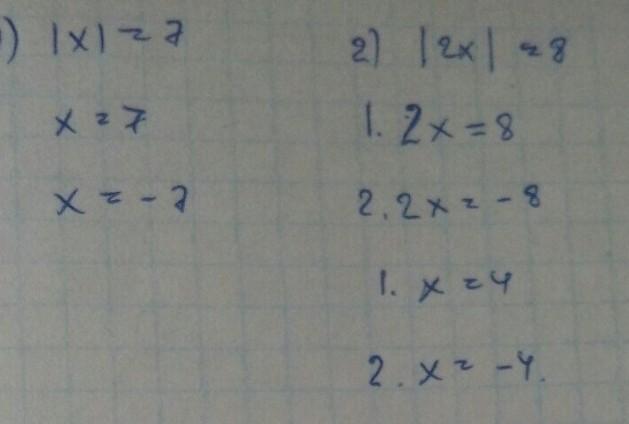 ) |x| = 7
x = 7
x = - 7
2) |2x| = 8
1. 2x = 8
2. 2x = - 8
1. x = 4
2. x = -4.